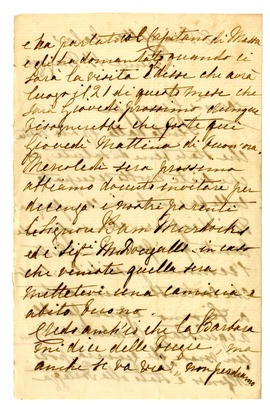 e ha parlato col Capitano di Massa
e gli ho domandato quando ci
sarà la visita e disse che avrà
luogo il 21 di questo mese che
sarà Giovedì prossimo dunque
bisognerebbe che foste qui
Giovedì mattina di buon'ora.
Mercoledì sera prossima
abbiamo dovuto invitare per
decenza i nostri parenti
le Signore
ed i Sigri McDougalls in caso
che veniate quella sera
mettetevi una camicia e
abito buono.
Vedo anch'io che la Barbara
mi dice delle me
anche se va via non perdiamo